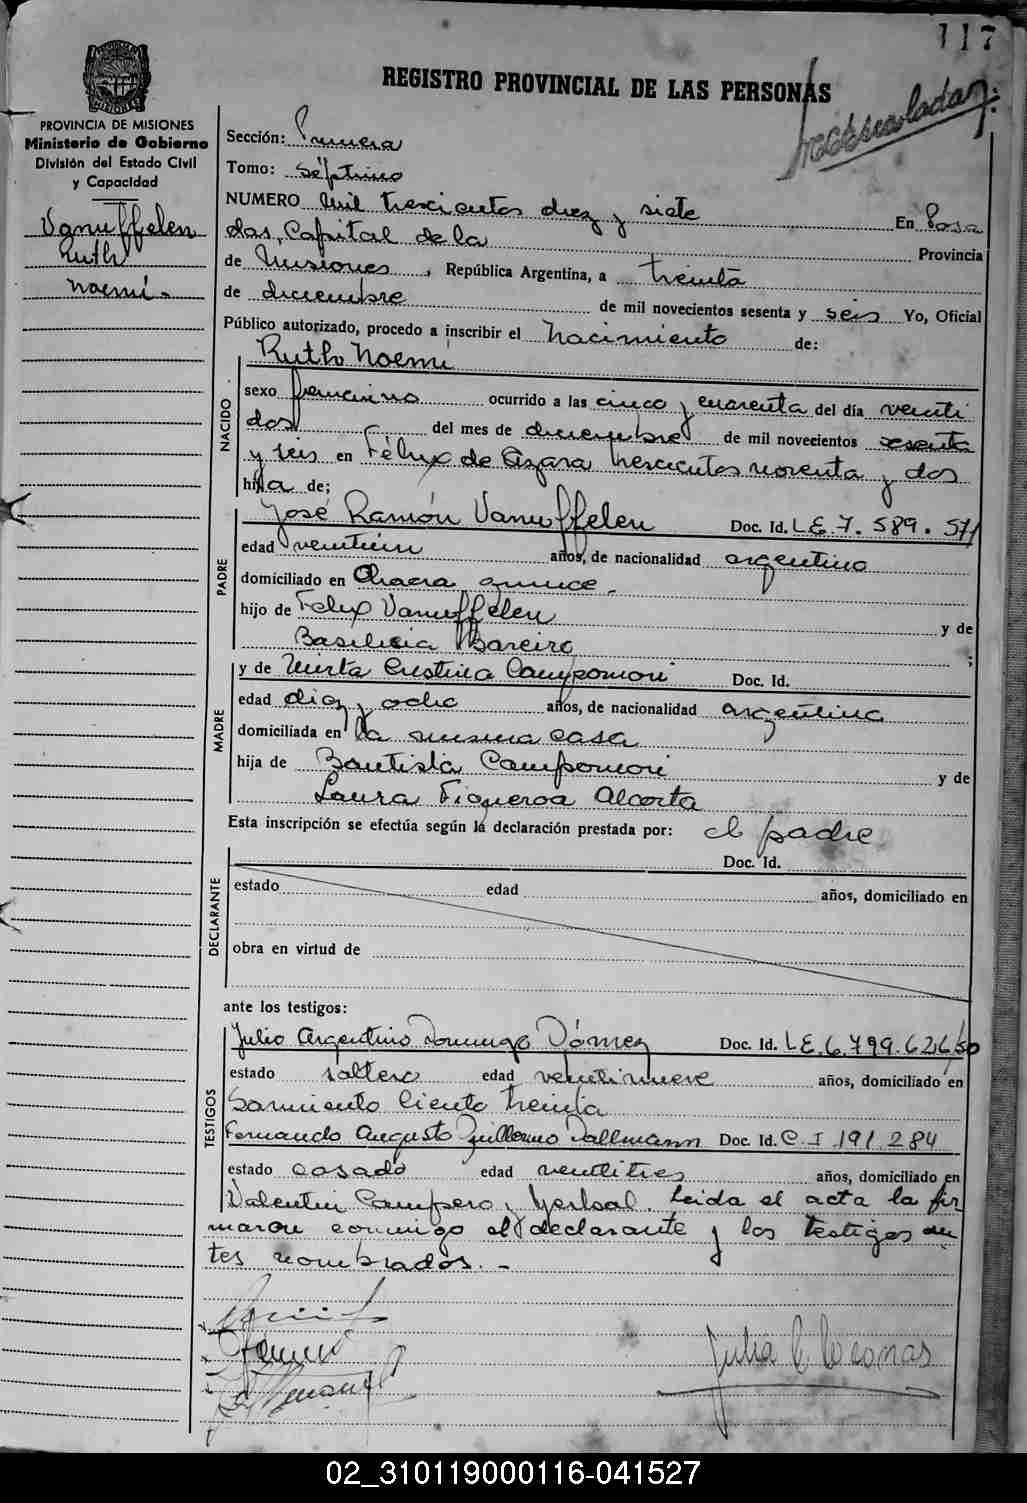 117
REGISTRO PROVINCIAL DE LAS PERSONAS
PROVINCIA DE MISIONES
Ministerio de Gobierno
División del Estado Civil
y Capacidad
Vanuffelen
Ruth
Noemí.-
Sección: Primera
Tomo: séptimo
NUMERO Mil trescientos diez y siete En Posa
das, Capital de la Provincia
de Misiones, República Argentina, a treinta
de diciembre de mil novecientos sesenta y seis Yo, Oficial
Público autorizado, procedo a inscribir el Nacimiento de:
Ruth Noemi
NACIDO
sexo femenino ocurrido a las cinco y cuarenta del día veinti
dos del mes de diciembre de mil novecientos sesenta
y seis en Félix de Azara trescientos noventa y dos
hija de;
PADRE
José Ramón Vanuffelen Doc. Id. L.E. 7.589.571
edad veintiun años, de nacionalidad argentino
domiciliado en Chacra quince.
hijo de Felix Vanuffelen y de
Basilicia Bareiro ;
MADRE
y de Mirta Cristina Campomori Doc. Id.
edad diez y ocho años, de nacionalidad argentina
domiciliada en la misma casa
hija de Bautista Campomori y de
Laura Figueroa Alcorta
Esta inscripción se efectúa según la declaración prestada por: el padre
Doc. Id.
DECLARANTE
estado edad años, domiciliado en
obra en virtud de
ante los testigos:
TESTIGOS
Julio Argentino Domingo Gómez Doc. Id. L.E. 6.799.626/50
estado soltero edad veintinueve años, domiciliado en
Sarmiento Ciento treinta
Fernando Augusto Guillermo Dallmann Doc. Id. C.I 191.284
estado casado edad veintitres años, domiciliado en
Valentin Campero y Yerbal. Leida el acta la fir
maron conmigo el declarante y los testigos an
tes nombrados.-
02_310119000116-041527